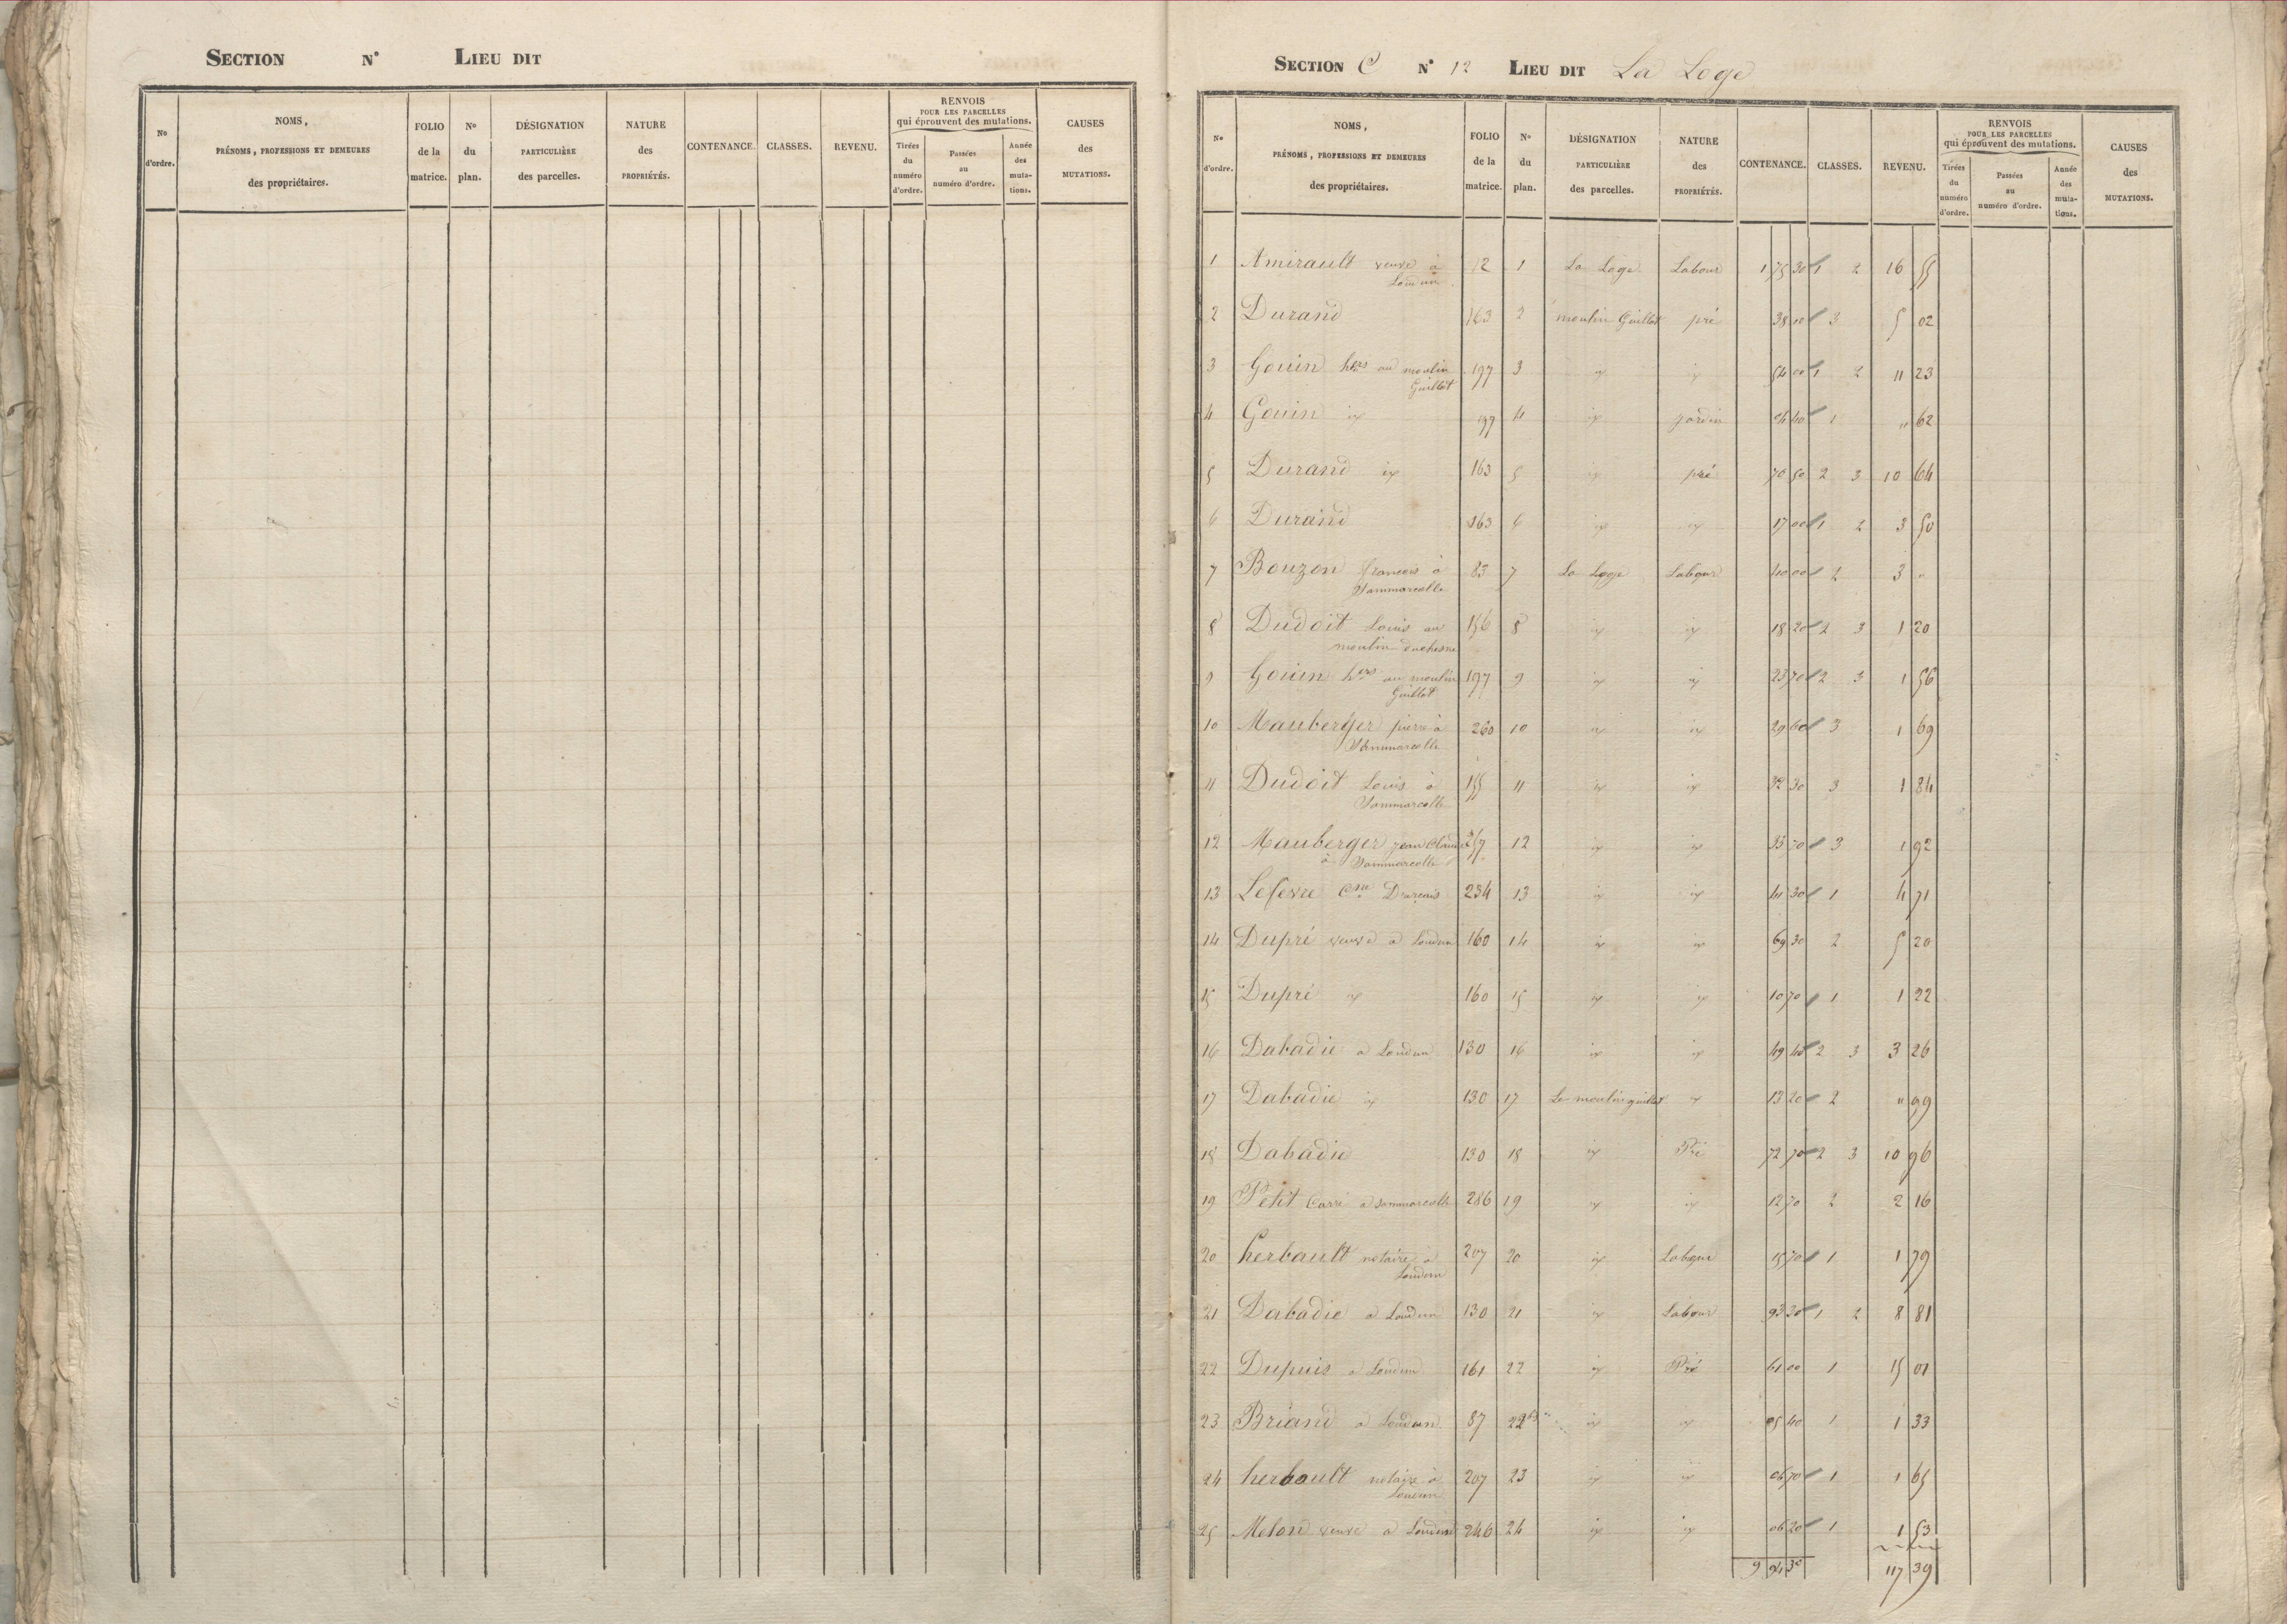 SECTION N° LIEU DIT
No d'ordre. NOMS, PRÉNOMS, PROFESSIONS ET DEMEURES des propriétaires. FOLIO de la matrice. No du plan. DÉSIGNATION PARTICULIÈRE des parcelles. NATURE des PROPRIÉTÉS. CONTENANCE. CLASSES. REVENU. RENVOIS POUR LES PARCELLES qui éprouvent des mutations. Tirées du numéro d'ordre. Passées au numéro d'ordre. Année des mutations. CAUSES des MUTATIONS.
SECTION C N° 12 LIEU DIT La Loge
No d'ordre. NOMS, PRÉNOMS, PROFESSIONS ET DEMEURES des propriétaires. FOLIO de la matrice. No du plan. DÉSIGNATION PARTICULIÈRE des parcelles. NATURE des PROPRIÉTÉS. CONTENANCE. CLASSES. REVENU. RENVOIS POUR LES PARCELLES qui éprouvent des mutations. Tirées du numéro d'ordre. Passées au numéro d'ordre. Année des mutations. CAUSES des MUTATIONS.
1 Amirault veuve à 12 1 La Loge Labour 1 75 30 1 2 16 55
Loudun
2 Durand 163 2 moulin Guillot pré 38 10 3 5 02
3 Gouin hers au moulin 197 3 54 00 1 2 11 23
Guillot
4 Gouin 197 4 jardin 04 40 1 " 62
5 Durand 163 5 pré 70 50 2 3 10 64
6 Durand 163 6 17 00 1 2 3 50
7 Bouzon francois à 83 7 La Loge Labour 40 00 2 3 "
Sammarcolle
8 Dudoit Louis au 156 8 18 20 2 3 1 20
moulin duchesne
9 Gouin hers au moulin 197 9 23 70 2 3 1 56
Guillot
10 Mauberger pierre à 260 10 29 60 3 1 69
Sammarcolle
11 Dudoit Louis à 155 11 32 30 3 1 84
Sammarcolle
12 Mauberger jean Claude 257 12 33 70 3 1 92
à Sammarcolle
13 Lefevre 234 13 41 30 1 4 71
14 Dupré veuve a Loudun 160 14 69 30 2 5 20
15 Dupré 160 15 10 70 1 1 22
16 Dabadie a Loudun 130 16 49 40 2 3 3 26
17 Dabadie 130 17 Le moulin guillot 13 20 2 " 99
18 Dabadie 130 18 Pré 72 70 2 3 10 96
19 Petit Curé a Sammarcolle 286 19 12 70 2 2 16
20 herbault notaire à 207 20 Labour 15 70 1 1 79
Loudun
21 Dabadie a Loudun 130 21 Labour 93 30 1 2 8 81
22 Dupuis a Loudun 161 22 Pré 61 00 1 15 01
23 Briand a Loudun 87 22 bis 05 40 1 1 33
24 herbault notaire à 207 23 06 70 1 1 65
Loudun
25 Melon veuve a Loudun 246 24 06 20 1 1 53
9 94 30 117 39